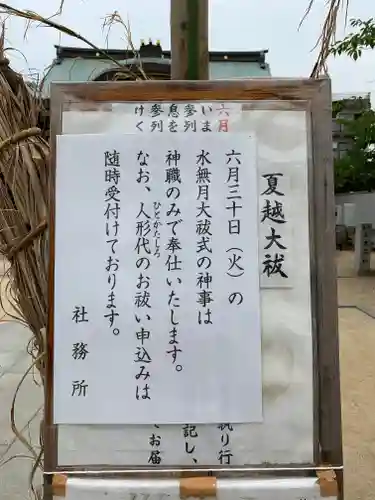 夏越大祓
六月三十日（火）の
水無月大祓式の神事は
神職のみで奉仕いたします。
なお、人形代のお祓い申込みは
ひとかたしろ
随時受付けております。
社務所
六月
いま
参列
息を
参列
けく
執り行
記し、
お届